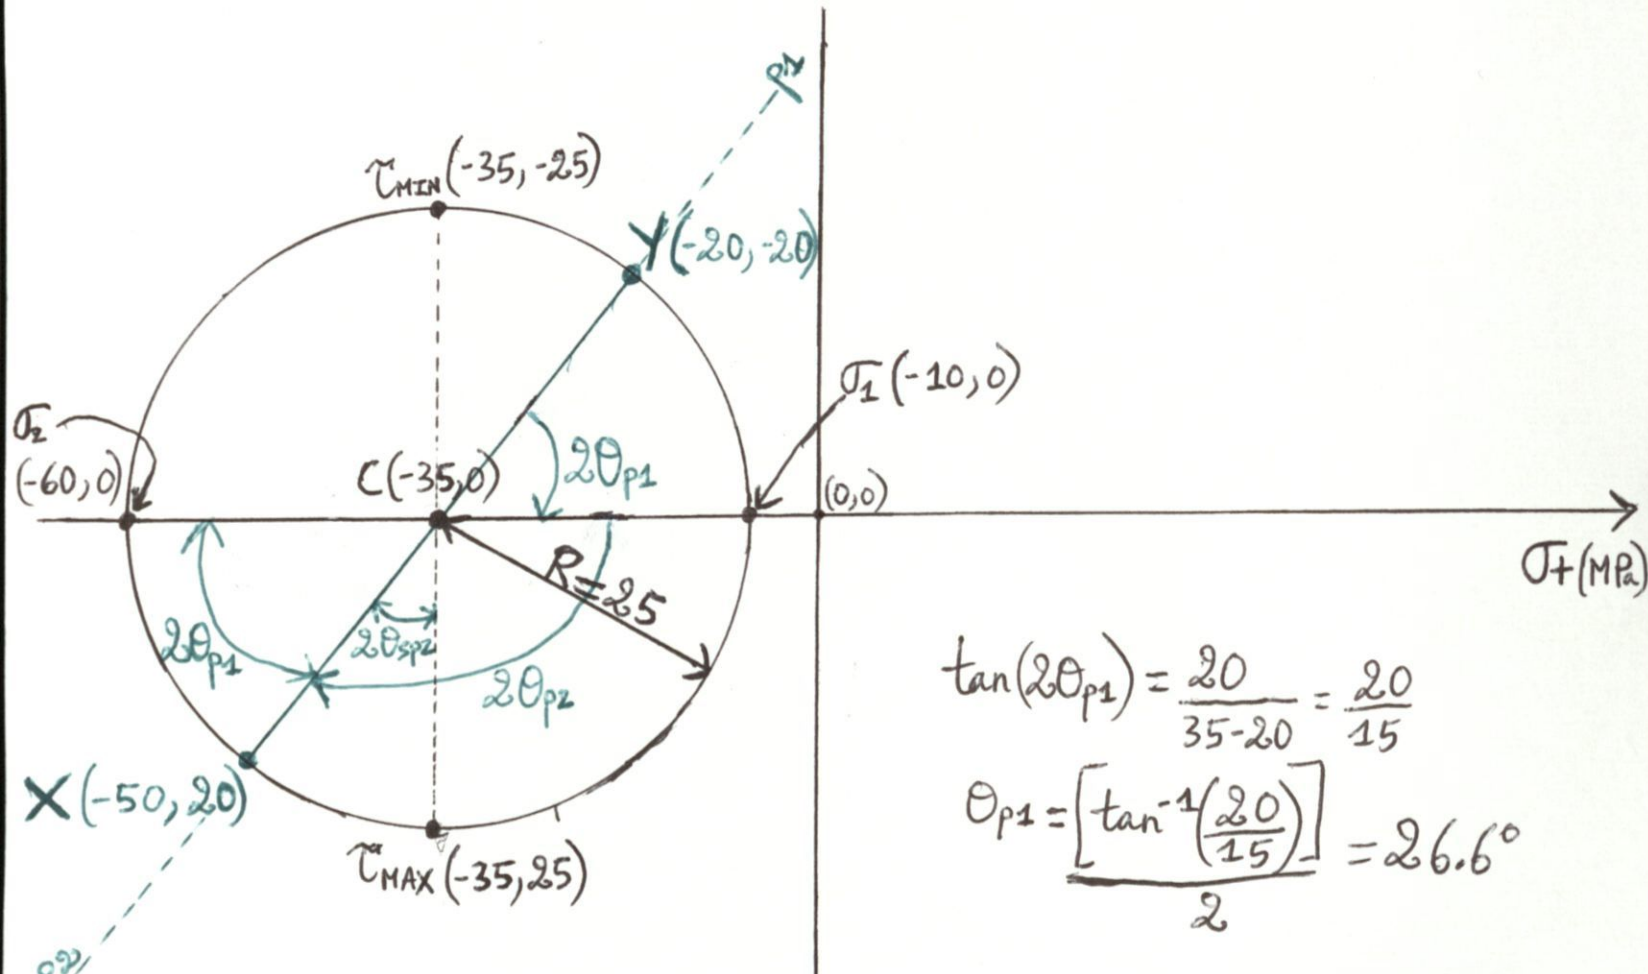 τMIN(-35,-25)
Y(-20,-20)
σ1(-10,0)
σ2
(-60,0)
C(-35,0)
2θp1
(0,0)
R=25
σ+(MPa)
2θp1
2θsp2
2θp2
X(-50,20)
τMAX(-35,25)
tan(2θp1) = 20/35-20 = 20/15
θp1 = [tan-1(20/15)]/2 = 26.6°